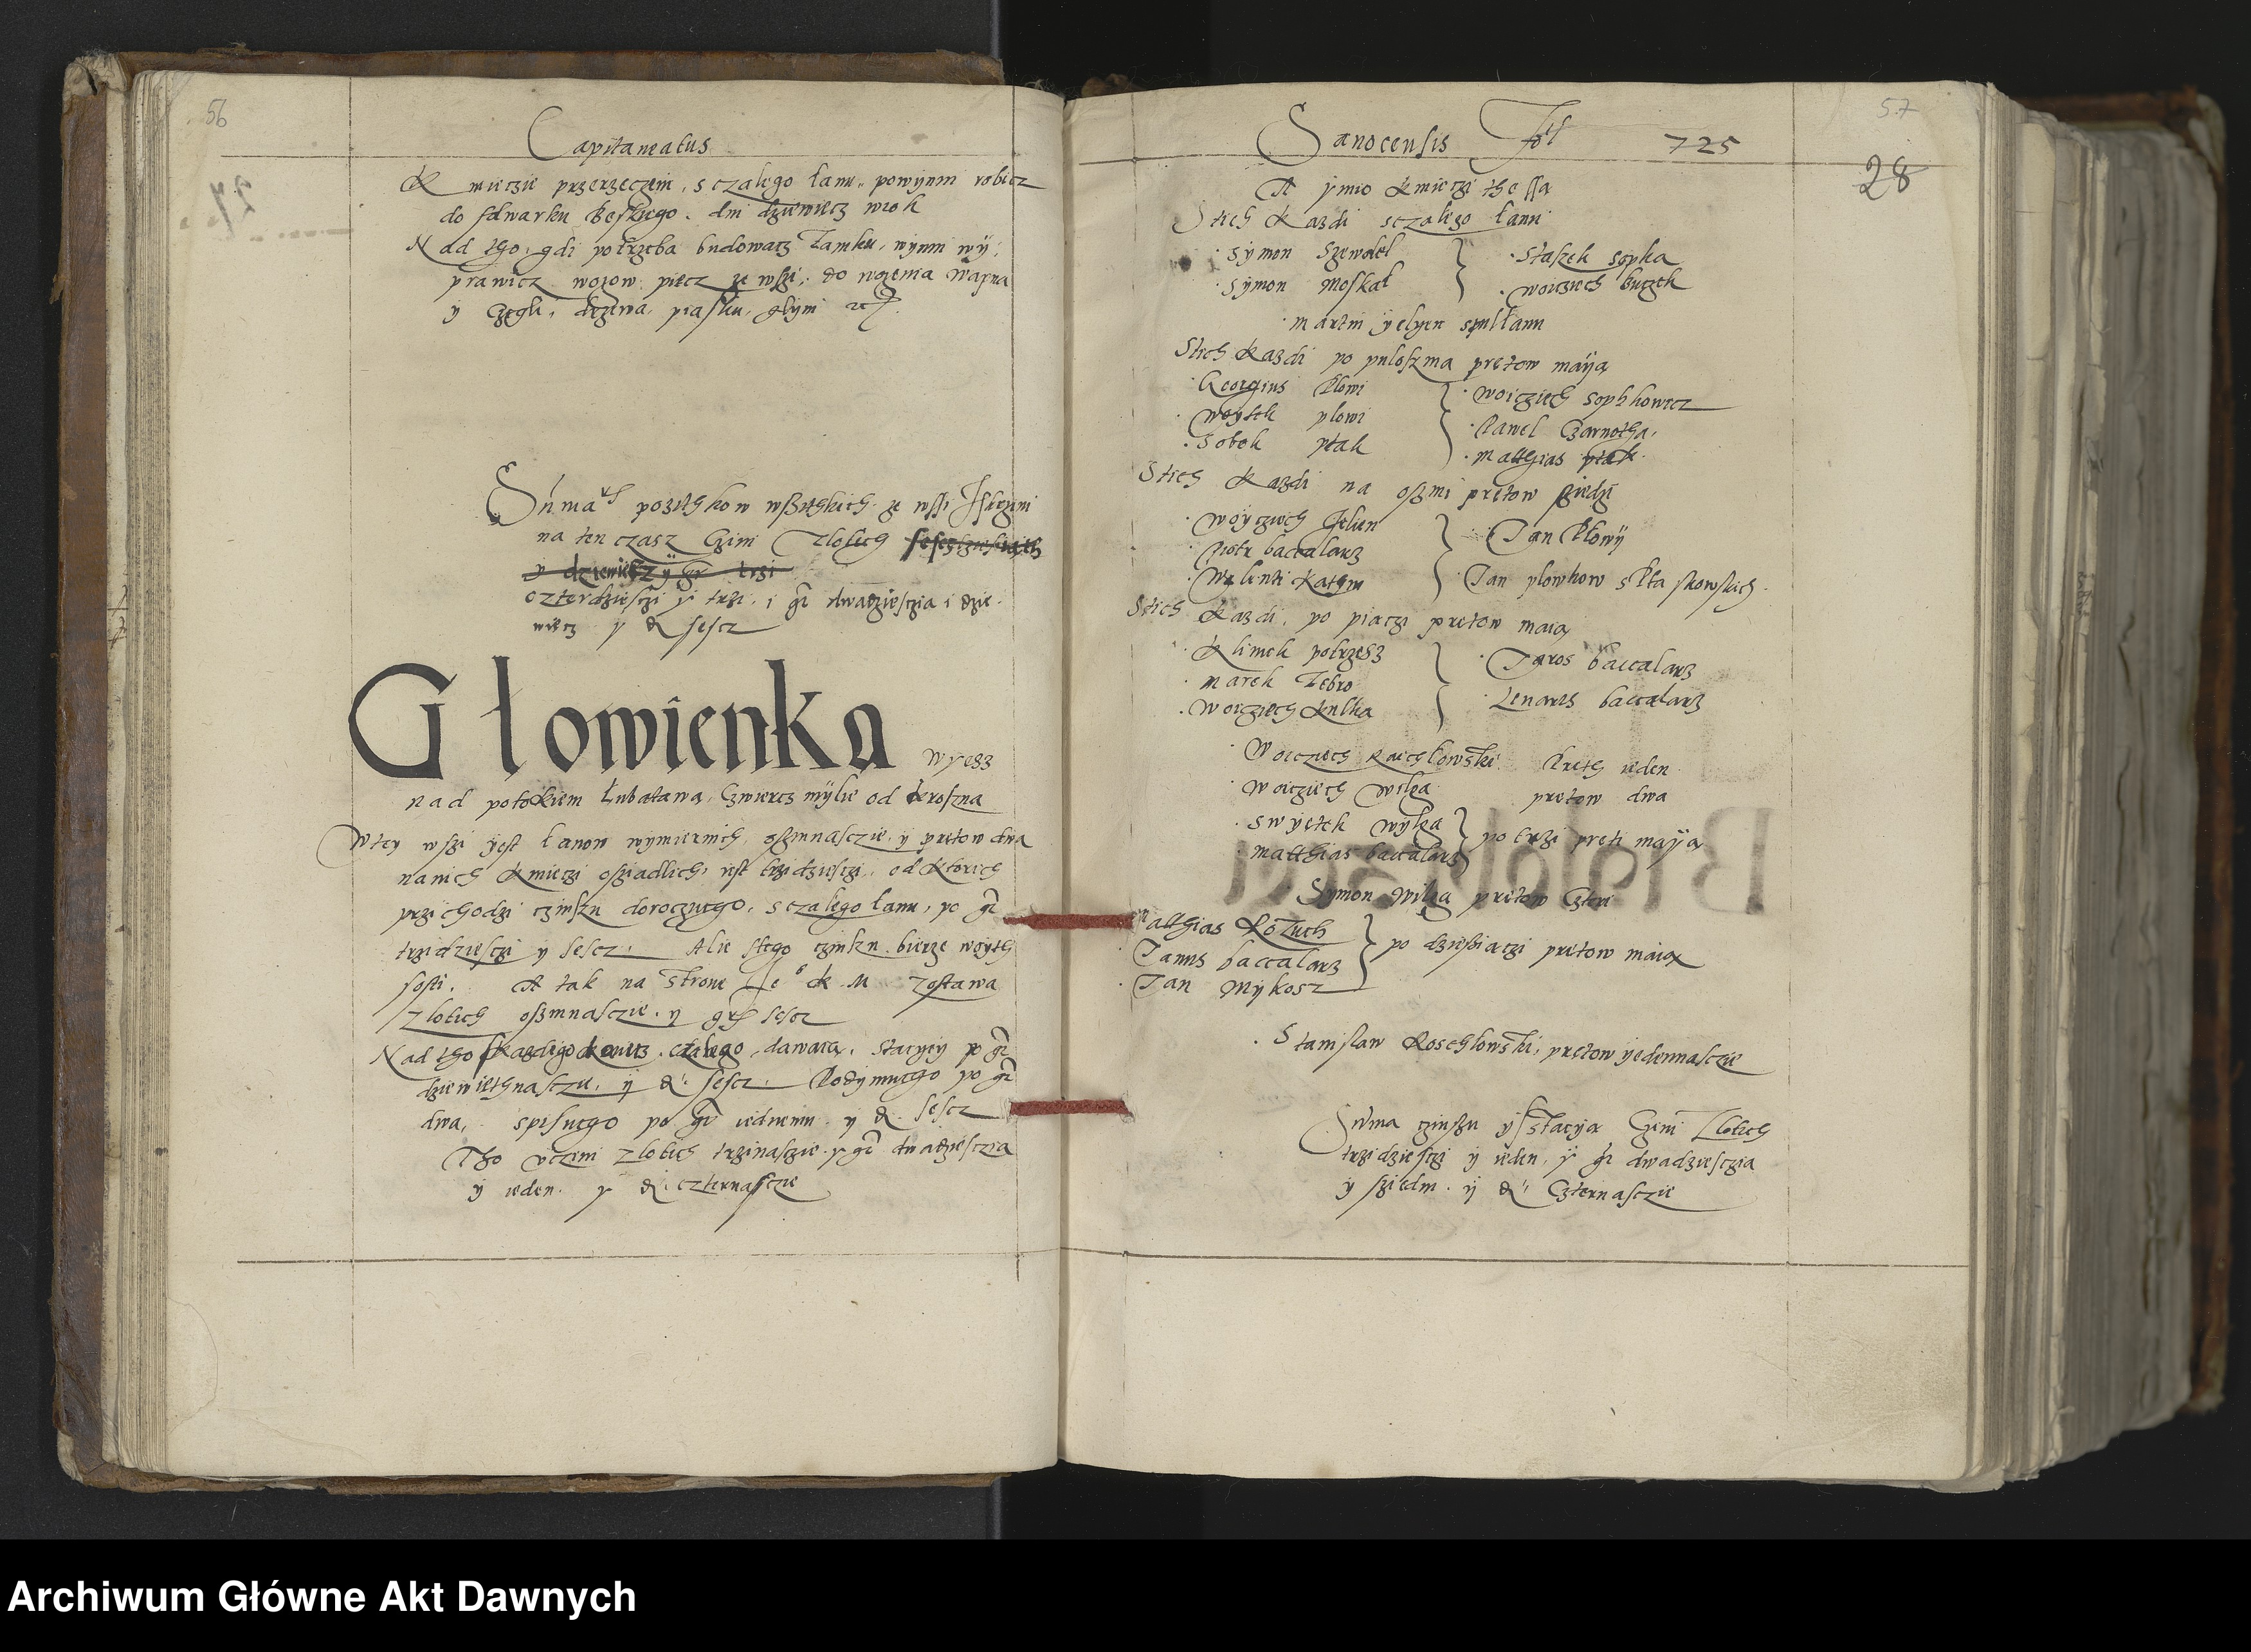 56
Capitaneatus
Kmieczie przerzeczeni, s czalego łanu, powynni robicz
do folwarku Beskiego. dni dziewiecz wrok
Nad tho, gdi potrzeba budowacz zamku, wynni wÿ-
prawicz wozow piecz ze wszi, do wozenia wapna
y Czegli, drzewa, piasku, glyni
Sum̃a pozithkow wßithkich ze wssi
na ten czasz Czini Zlotich
y dziewiecz ÿ gr trzi
czterdziesczi ÿ trzi, i gr dwadziesczia i dzie-
wiecz y d sescz
Głowienka wyesz
nad potokiem Łubatawa, Czwiercz mÿlie od Krosna
Wtey wszi jest łanow wymiernich, oszmnasczie y pretow dwa
na nich Kmieczi osziadlich, jest trzidziesczi, od Ktorich
przichodzi czinszu dorocznego, s czalego łanu, po gr
trzidziesczi y sescz. Alie stego czinszu bierze woyth
sosti. A tak na strone Je° K M zostawa
Zlotich oszmnasczie y gr sescz
Nad tho kazdi Kmiecz czalego, dawaia, staciey po gr
dziewiethnasczie, ÿ d sescz. Podymnego po gr
dwa, spisnego po gr iednemu y d sescz
Tho vczini Zlotich trzinasczie y gr dwadziesczia
ÿ ieden. y d czternasczie
57
Sanocensis Fol 725
28
A ymiona kmieczi the ssa
Stich Kazdi sczalego łanu
Symon Szewdel
Symon Moskal
Staszek sopka
woicziech buczek
Martin ÿelyen spulłanu
Stich Kazdi po puloszma pretow maÿa
Georgius Plowi
woytek plowi
Sobek ptak
woicziech sopkkowicz
Pawel Czarnotha
Matthias ptak
Stich Kazdi na oszmi pretow sziedzi
Woyczech Jelien
Piotr baccalarz
Walenti Kathin
Jan Plowÿ
Jan plowkow
Stich Kazdi, po piaczi pretow maia
Klimek potrzesz
Marek Zebro
Woiczech Kulka
Jaros baccalarz
Lenarts baccalarz
Woiczech Preth ieden
Woiczech wilga pretow dwa
Swyetek wylga
Matthias baccalarz
po trzi preti maÿa
Symon Wilga pretow Czteri
Matthias Kozuch
Janus baccalarz
Jan Mÿkosz
po dziesiaczi pretow maia
Stanislaw Roschkowski, pretow jedennasczie
Suma czinszu y sstacyja Czini Zlotich
trzidziesczi y ieden, ÿ gr dwadziesczia
y sziedm. ÿ d Czternasczie
Archiwum Główne Akt Dawnych